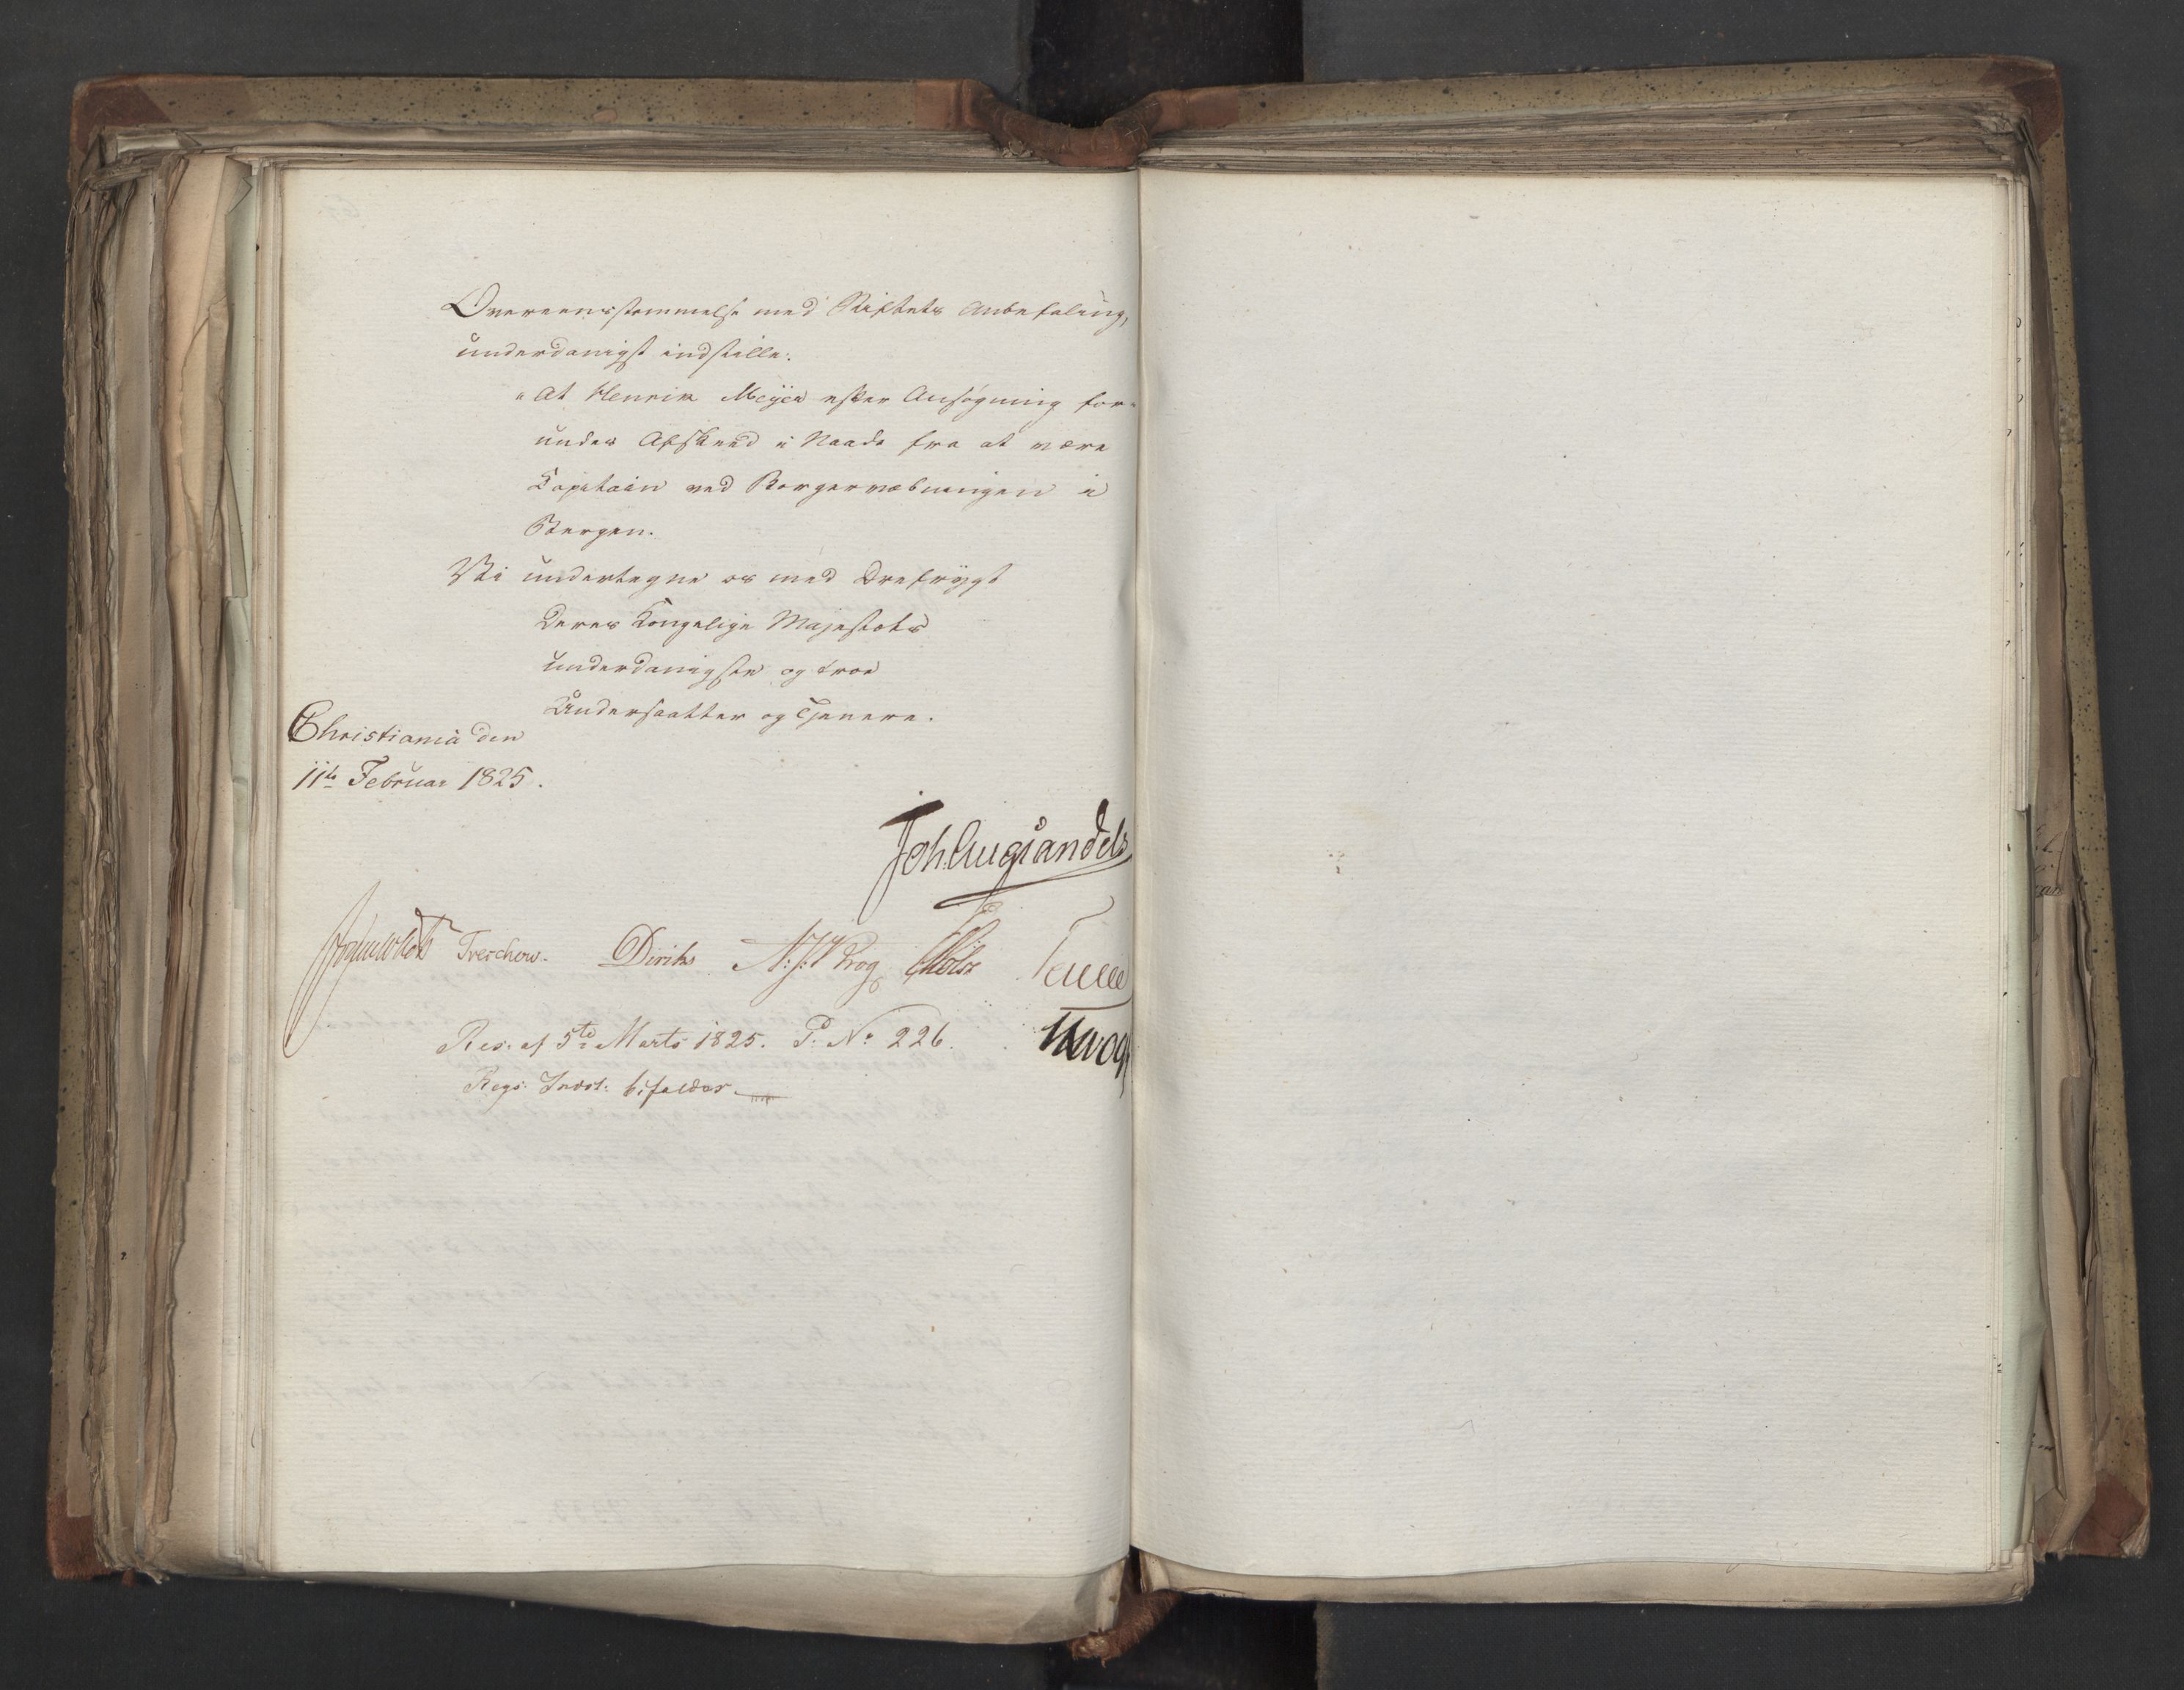 Overeensstemmelse med Stiftets Anbefaling,
underdanigst indstille:
"At Henrik Meyer efter Ansøgning for-
undes Afskeed i Naade fra at være
Capitain ved Borgervæbningen i
Bergen.
Vi undertegne os med Ærefrygt
Deres Kongelige Majestæts
underdanigste og troe
Undersaatter og Tjenere.
Christiania den
11te Februar 1825.
Joh. Aug. Sandels
Treschow. Diriks N. J. Krog Falsen
Krog
Res. af 5te Marts 1825. P. No 226.
Regs. Indst. bifaldes.